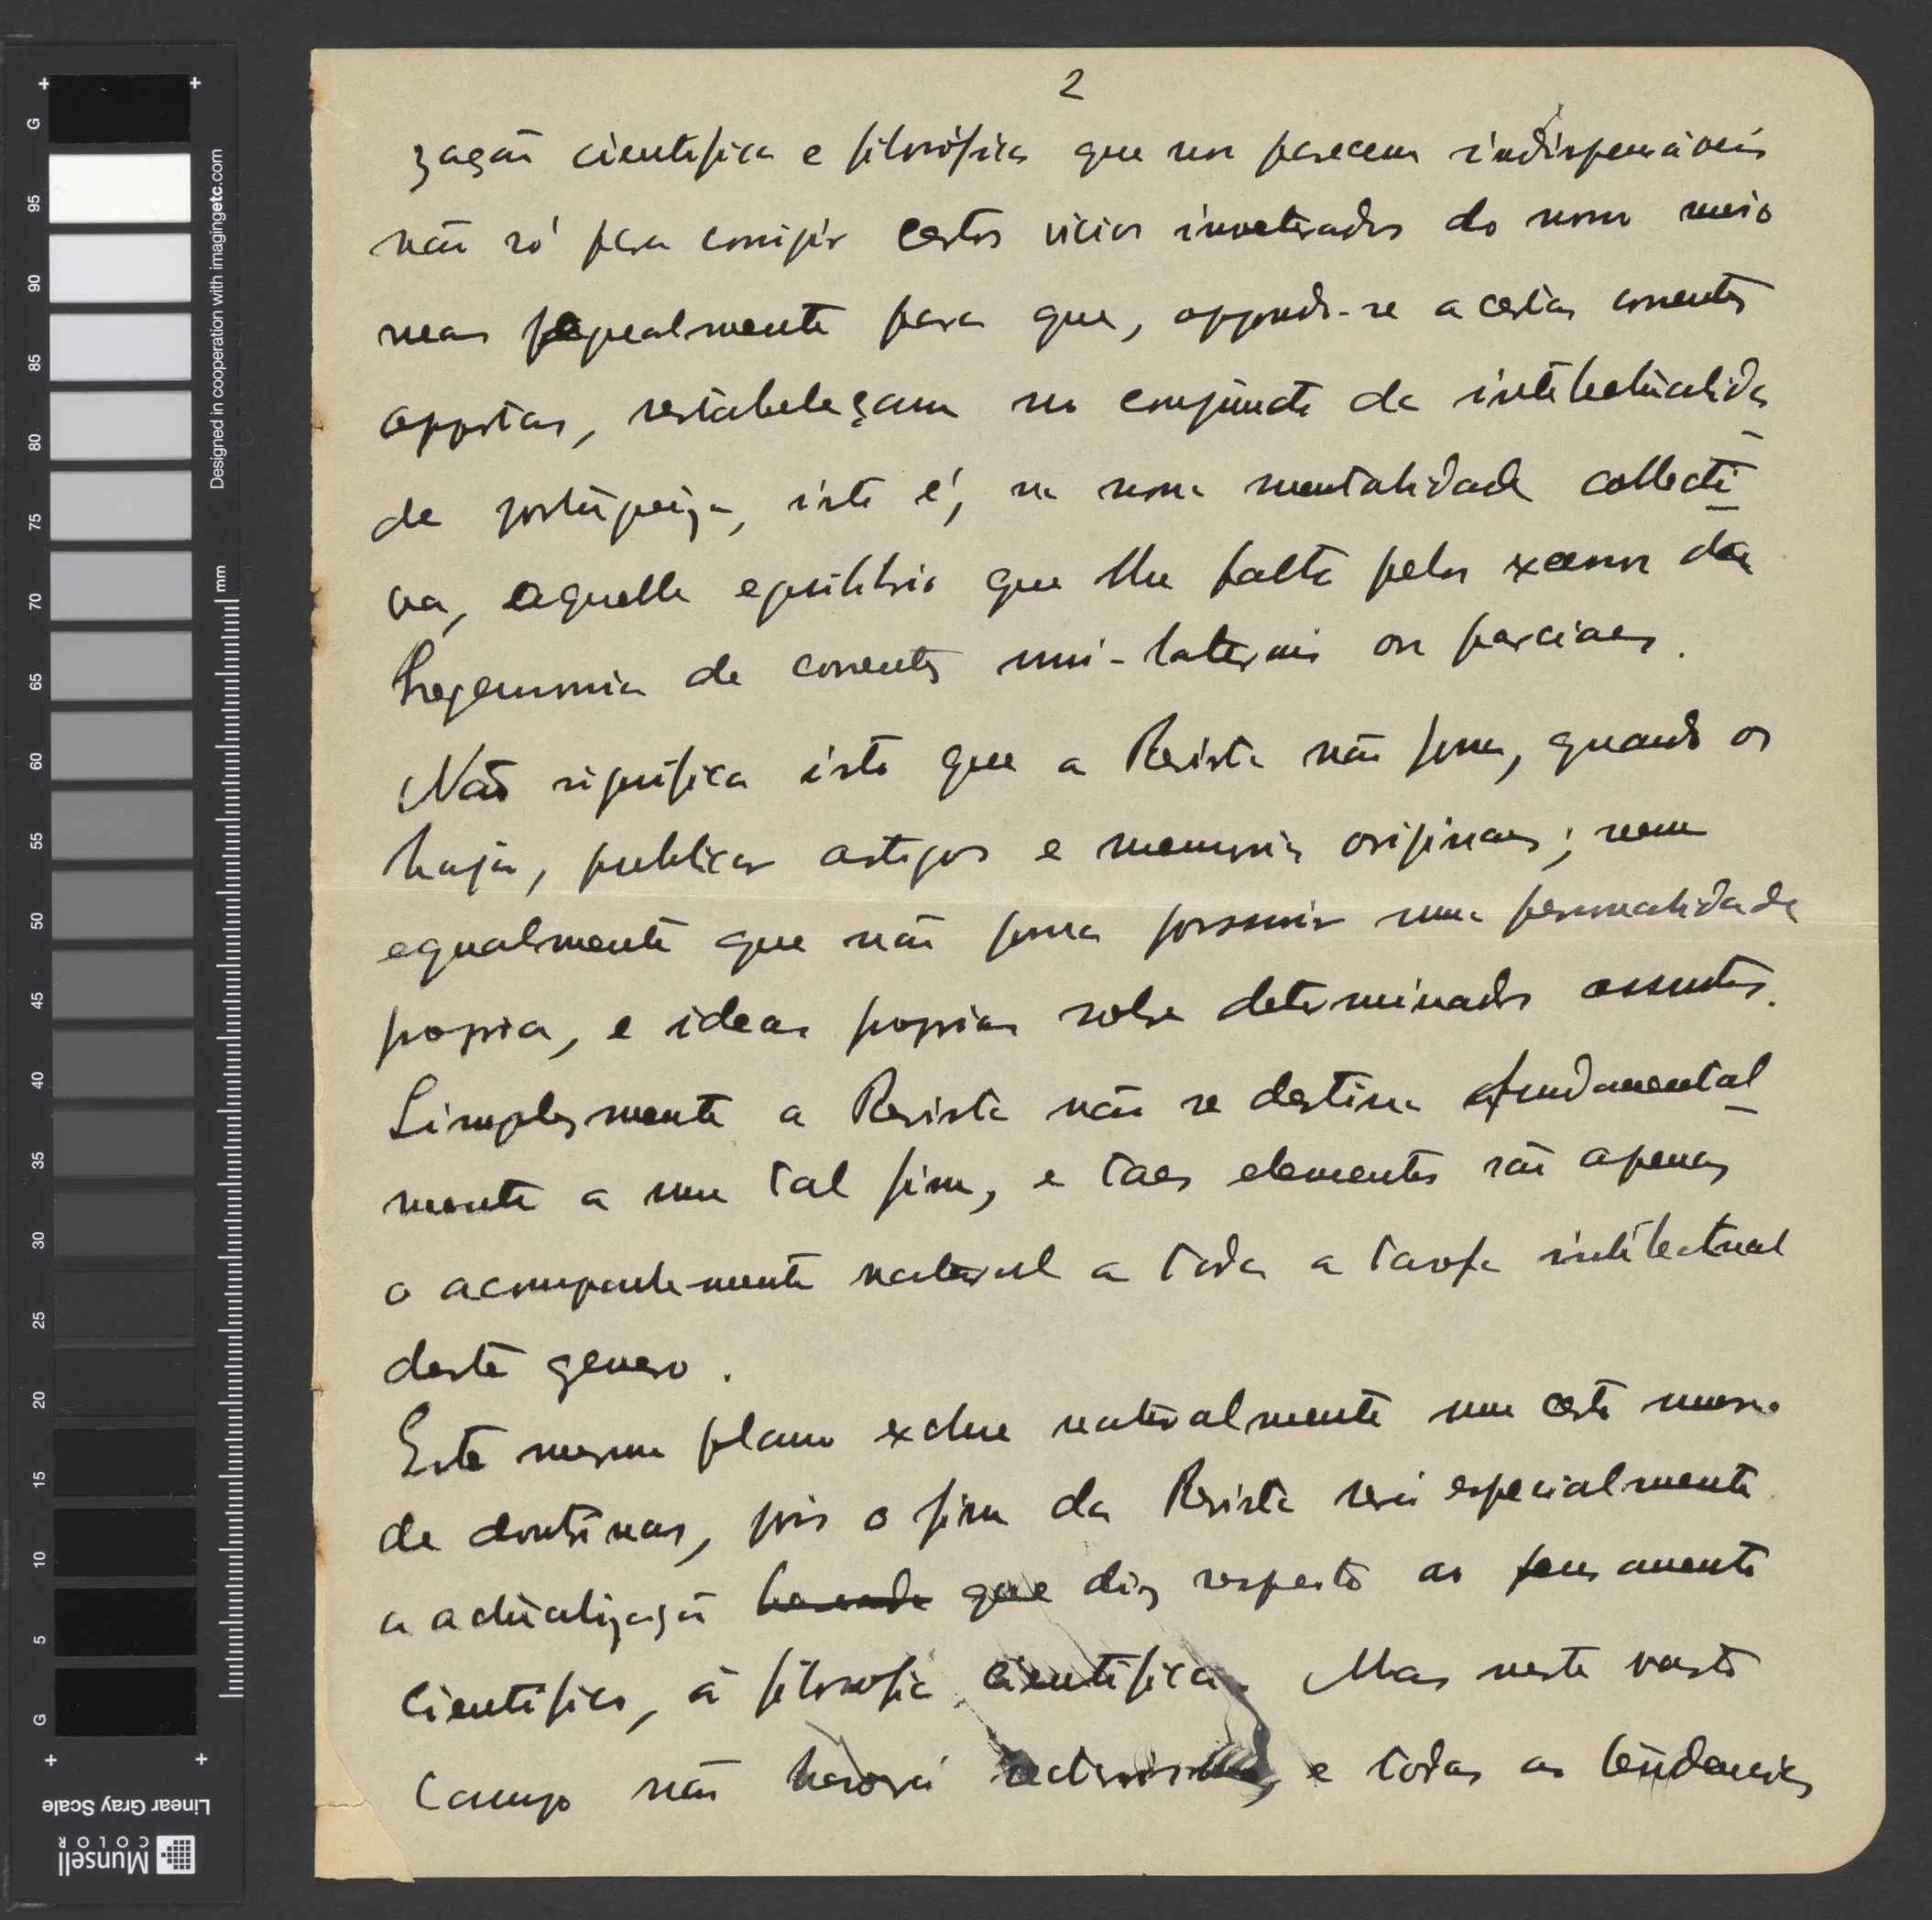 2
zação cientifica e filosófica que nos parecem indispensáveis
não só para corrigir certos vicios inveterados do nosso meio
mas egualmente para que, oppondo-se a certas correntes
oppostas, restabeleçam no conjuncto da intellectualida
de portugueza, isto é, na nossa mentalidade collecti-
va, aquelle equilibrio que lhe falta pela excessiva
hegemonia de correntes uni-lateraes ou parciaes.
Não significa isto que a Revista não possa, quando os
haja, publicar artigos e memorias originaes; nem
egualmente que não possa possuir uma personalidade
propria, e ideas proprias sobre determinados assuntos.
Simplesmente a Revista não se destina fundamental-
mente a um tal fim, e taes elementos são apenas
o acompanhamento natural a toda a tarefa intelectual
deste genero.
Este mesmo plano exclue naturalmente um certo numero
de doutrinas, pois o fim da Revista será especialmente
a actualização que diz respeito ao pensamento
cientifico, á filosofia cientifica. Mas neste vasto
campo não haverá e todas as tendencias
95
90
85
80
75
70
65
60
55
50
45
40
35
30
25
20
15
10
5
G
G
mm
Designed in cooperation with imagingetc.com
Linear Gray Scale
Munsell
COLOR